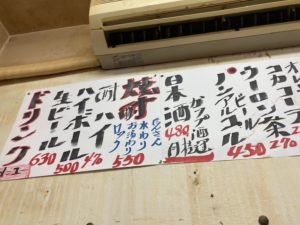 ドリンク
メニュー
生ビール
630
ハイボール
500
酎ハイ
焼酎
水わり
お湯わり
ロック
550
日本酒
カップ酒
480円
ノンアルビール
450
ウーロン茶
コカコーラ